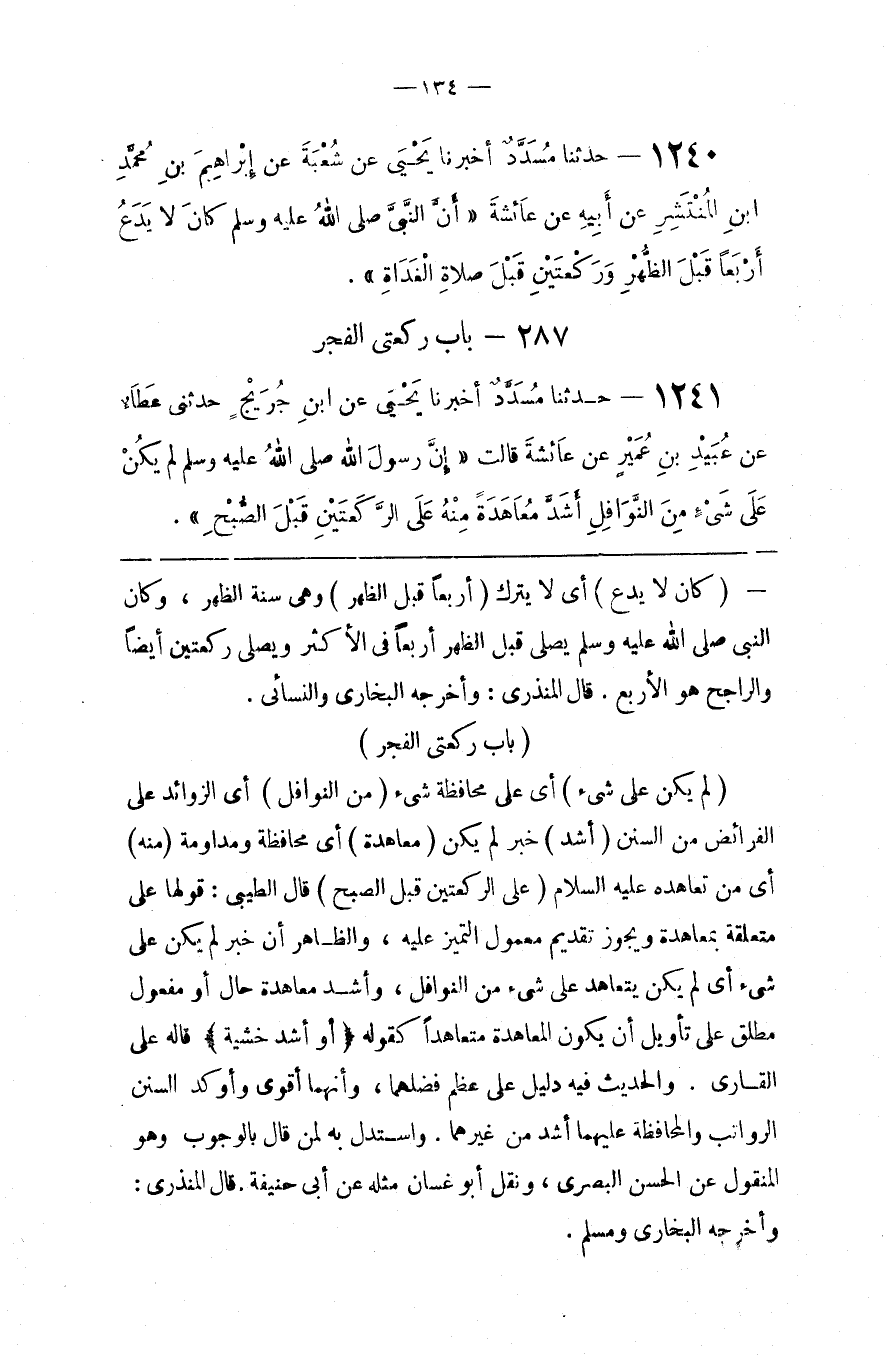 — ١٣٤ —
١٢٤٠ — حدثنا مُسَدَّدٌ أخبرنا يَحْيَى عن شُعْبَةَ عن إِبْرَاهِيمَ بنِ مُحمَّدِ
ابنِ المُنْتَشِرِ عن أَبِيهِ عن عَائشةَ « أَنَّ النَّبِيَّ صلى اللهُ عليه وسلم كانَ لا يَدَعُ
أَرْبَعاً قَبْلَ الظُّهْرِ وَرَكْعتَيْنِ قَبْلَ صلاةِ الْغَدَاةِ » .
٢٨٧ — باب ركعتى الفجر
١٢٤١ — حـدثنا مُسَدَّدٌ أخبرنا يَحْيَى عن ابنِ جُرَيْجٍ حدثنى عَطَاءٌ
عن عُبَيْدِ بنِ عُمَيْرٍ عن عَائشةَ قالت « إِنَّ رسولَ الله صلى اللهُ عليه وسلم لم يكُنْ
عَلَى شَىْءٍ مِنَ النَّوَافِلِ أَشَدَّ مُعَاهَدَةً مِنْهُ عَلَى الرَّكعتَيْنِ قَبْلَ الصُّبْحِ » .
— ( كان لا يدع ) أى لا يترك ( أربعاً قبل الظهر ) وهى سنة الظهر ، وكان
النبى صلى الله عليه وسلم يصلى قبل الظهر أربعاً فى الأكثر ويصلى ركعتين أيضاً
والراجح هو الأربع . قال المنذرى : وأخرجه البخارى والنسائى .
( باب ركعتى الفجر )
( لم يكن على شىء ) أى على محافظة شىء ( من النوافل ) أى الزوائد على
الفرائض من السنن ( أشد ) خبر لم يكن ( معاهدة ) أى محافظة ومداومة (منه)
أى من تعاهده عليه السلام ( على الركعتين قبل الصبح ) قال الطيبى : قولها على
متعلقة بمعاهدة ويجوز تقديم معمول التميز عليه ، والظـاهر أن خبر لم يكن على
شىء أى لم يكن يتعاهد على شىء من النوافل ، وأشـد معاهدة حال أو مفعول
مطلق على تأويل أن يكون المعاهدة متعاهداً كقوله ﴿ أو أشد خشية ﴾ قاله على
القـارى . والحديث فيه دليل على عظم فضلهما ، وأنهما أقوى وأوكد السنن
الرواتب والمحافظة عليهما أشد من غيرهما . واسـتدل به لمن قال بالوجوب وهو
المنقول عن الحسن البصرى ، ونقل أبو غسان مثله عن أبى حنيفة . قال المنذرى :
وأخرجه البخارى ومسلم .